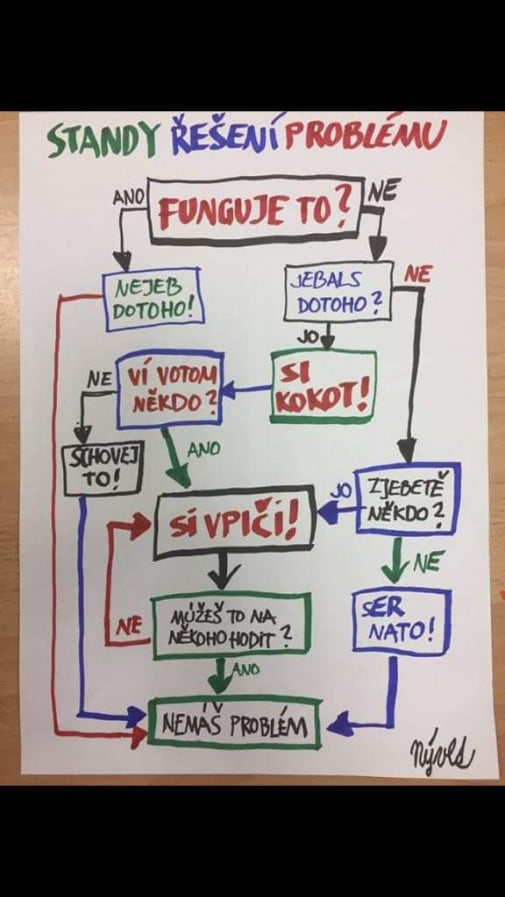 STANDY ŘEŠENÍ PROBLÉMU
ANO
FUNGUJE TO?
NE
NEJEB
DOTOHO!
JEBALS
DOTOHO?
NE
JO
NE
VÍ VOTOM
NĚKDO?
SI
KOKOT!
SCHOVEJ
TO!
ANO
SI VPIČI!
JO
ZJEBETĚ
NĚKDO?
NE
NE
MŮŽEŠ TO NA
NĚKOHO HODIT?
SER
NATO!
ANO
NEMÁŠ PROBLÉM